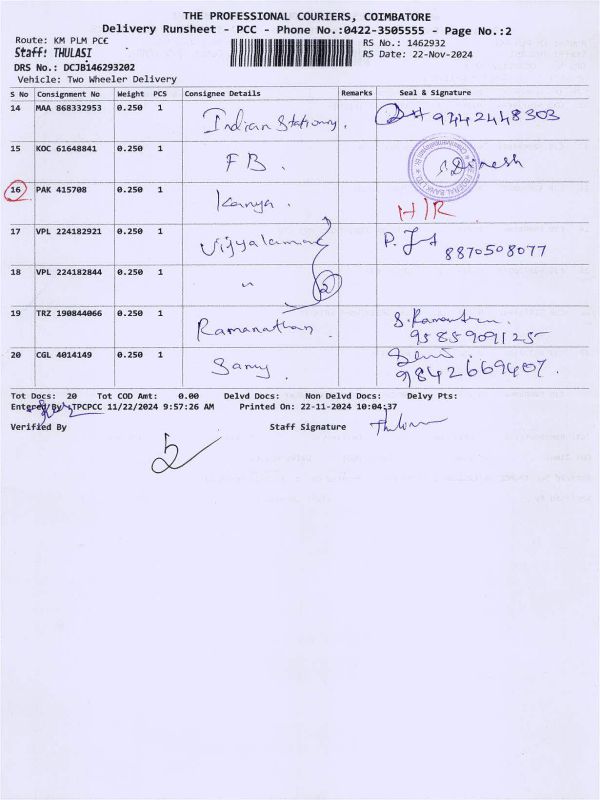 THE PROFESSIONAL COURIERS, COIMBATORE
Delivery Runsheet - PCC - Phone No.:0422-3505555 - Page No.:2
Route: KM PLM PCC
RS No.: 1462932
Staff: THULASI
RS Date: 22-Nov-2024
DRS No.: DCJB146293202
Vehicle: Two Wheeler Delivery
S No Consignment No Weight PCS Consignee Details Remarks Seal & Signature
14 MAA 868332953 0.250 1 Indian Stationary. 9442448303
15 KOC 61648841 0.250 1 FB. Dinesh
16 PAK 415708 0.250 1 Kanya. H/R
17 VPL 224182921 0.250 1 Vijyalaxmi P. 8870508077
18 VPL 224182844 0.250 1 " 2
19 TRZ 190844066 0.250 1 Ramanathan. S. 95859091125
20 CGL 4014149 0.250 1 Samy. 9842669407.
Tot Docs: 20 Tot COD Amt: 0.00 Delvd Docs: Non Delvd Docs: Delvy Pts:
Entered By: TPCPCC 11/22/2024 9:57:26 AM Printed On: 22-11-2024 10:04:37
Verified By Staff Signature